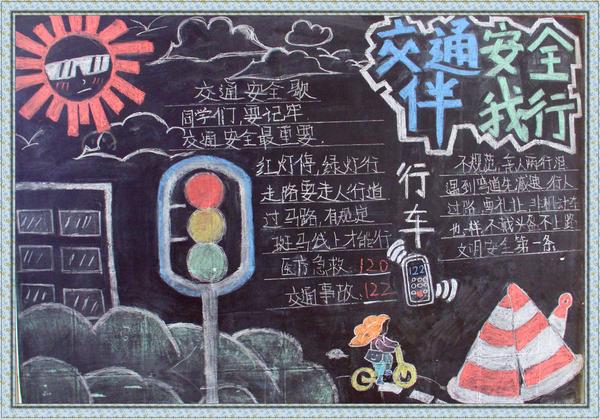 交通安全
伴我行
交通安全歌
同学们,要记牢
交通安全最重要.
红灯停,绿灯行
走路要走人行道
过马路,有规定
斑马线上才能行
医疗急救:120
交通事故:122
行车
122
不规范,亲人两行泪
遇到弯道先减速 行人
过路 要礼让 非机动车
也一样,不戴头盔不上路
文明安全第一条